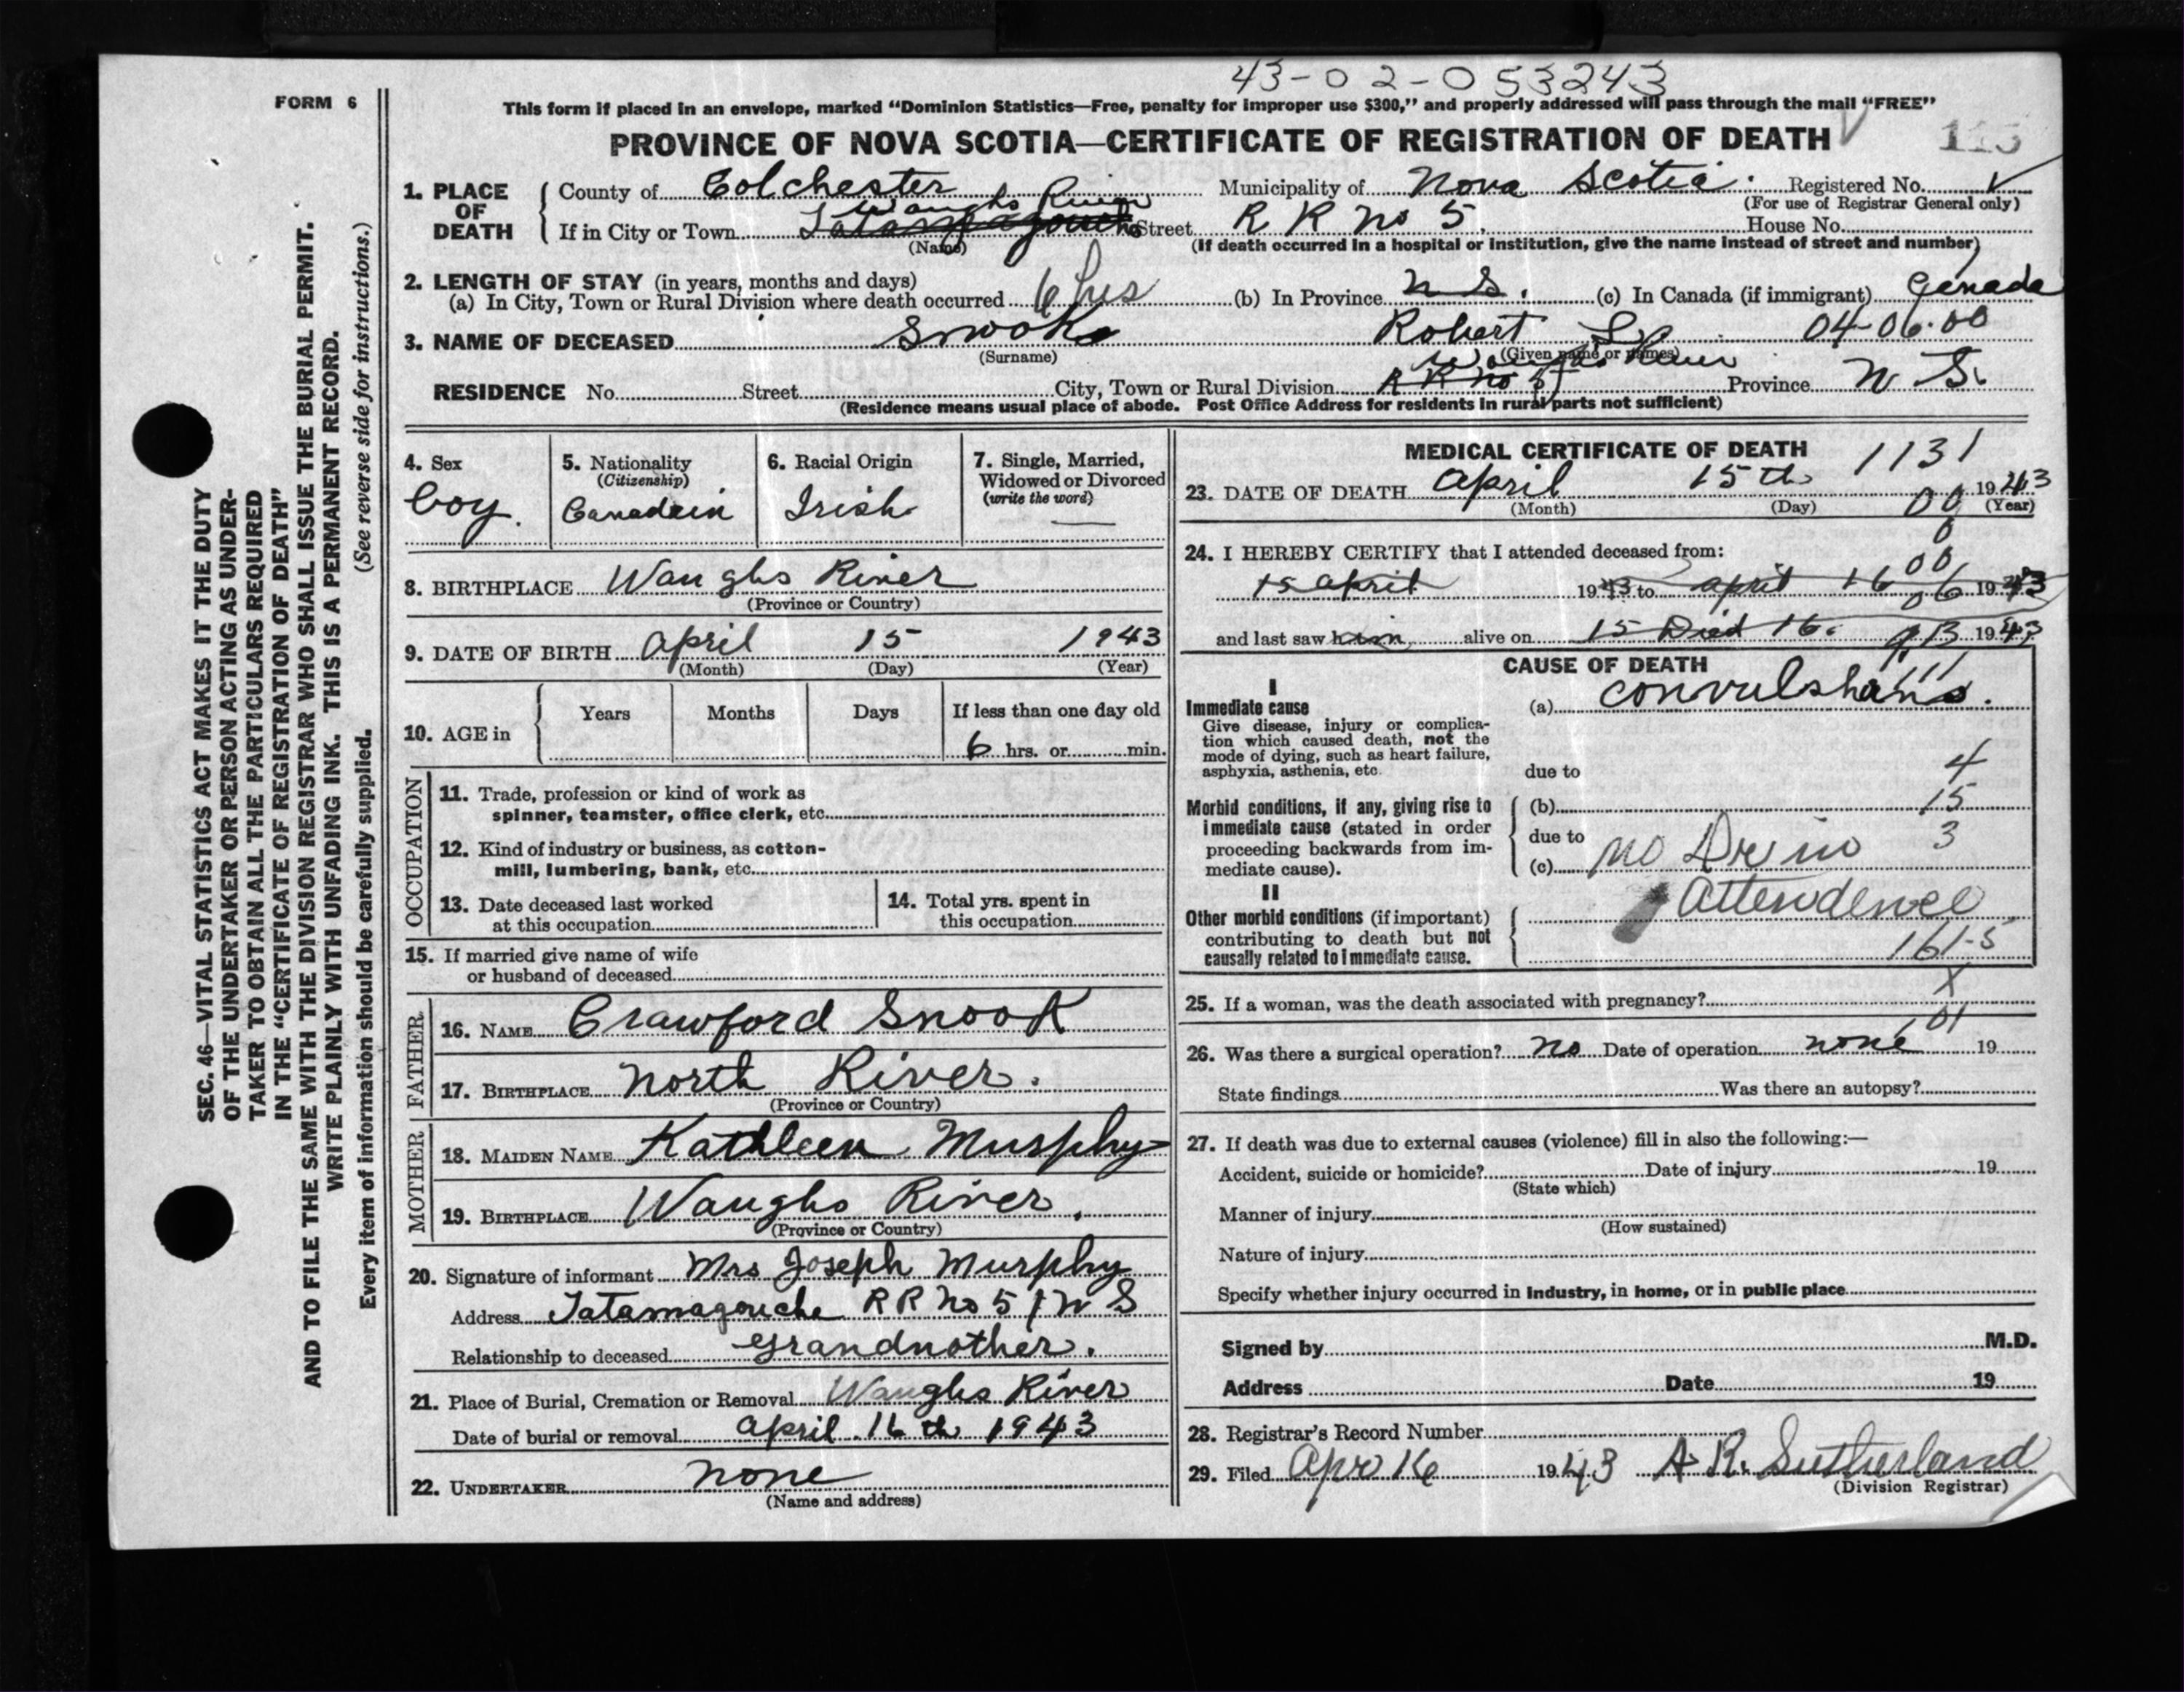 43-02-053243
FORM 6
This form if placed in an envelope, marked "Dominion Statistics—Free, penalty for improper use $300," and properly addressed will pass through the mail "FREE"
PROVINCE OF NOVA SCOTIA—CERTIFICATE OF REGISTRATION OF DEATH
115
1. PLACE OF DEATH
County of Colchester Municipality of Nova Scotia. Registered No.
(For use of Registrar General only)
Waughs River
If in City or Town Tatamagouche Street R R No 5. House No.
(Name) (If death occurred in a hospital or institution, give the name instead of street and number)
2. LENGTH OF STAY (in years, months and days)
(a) In City, Town or Rural Division where death occurred 6 hrs (b) In Province N S. (c) In Canada (if immigrant) Canada
3. NAME OF DECEASED Snook Robert 04-06-00
(Surname) (Given name or names)
Waughs River
RESIDENCE No. Street City, Town or Rural Division R R No 5 Province N S.
(Residence means usual place of abode. Post Office Address for residents in rural parts not sufficient)
4. Sex
boy.
5. Nationality
(Citizenship)
Canadain
6. Racial Origin
Irish
7. Single, Married, Widowed or Divorced
(write the word)
8. BIRTHPLACE Waughs River
(Province or Country)
9. DATE OF BIRTH April 15 1943
(Month) (Day) (Year)
10. AGE in Years Months Days If less than one day old
6 hrs. or min.
OCCUPATION
11. Trade, profession or kind of work as
spinner, teamster, office clerk, etc.
12. Kind of industry or business, as cotton-
mill, lumbering, bank, etc.
13. Date deceased last worked
at this occupation
14. Total yrs. spent in
this occupation
15. If married give name of wife
or husband of deceased
FATHER
16. NAME Crawford Snook
17. BIRTHPLACE North River.
(Province or Country)
MOTHER
18. MAIDEN NAME Kathleen Murphy
19. BIRTHPLACE Waughs River.
(Province or Country)
20. Signature of informant Mrs Joseph Murphy
Address Tatamagouche R R No 5 N S
Relationship to deceased Grandmother.
21. Place of Burial, Cremation or Removal Waughs River
Date of burial or removal April 16th 1943
22. UNDERTAKER none
(Name and address)
MEDICAL CERTIFICATE OF DEATH
1131
23. DATE OF DEATH April 15th 1943
(Month) (Day) (Year)
00
0
24. I HEREBY CERTIFY that I attended deceased from:
00
15 April 1943 to April 16 1943
06
and last saw him alive on 15 Died 16. 1943
CAUSE OF DEATH
I
Immediate cause
Give disease, injury or complica-
tion which caused death, not the
mode of dying, such as heart failure,
asphyxia, asthenia, etc.
(a) convulshans.
due to
4
Morbid conditions, if any, giving rise to
immediate cause (stated in order
proceeding backwards from im-
mediate cause).
(b) 15
due to 3
(c) no Dr in
Attendence
II
Other morbid conditions (if important)
contributing to death but not
causally related to immediate cause.
161-5
X
25. If a woman, was the death associated with pregnancy?
01
26. Was there a surgical operation? no Date of operation none 19
State findings Was there an autopsy?
27. If death was due to external causes (violence) fill in also the following:—
Accident, suicide or homicide? Date of injury 19
(State which)
Manner of injury
(How sustained)
Nature of injury
Specify whether injury occurred in industry, in home, or in public place
Signed by M.D.
Address Date 19
28. Registrar's Record Number
29. Filed Apr 16 1943 A R. Sutherland
(Division Registrar)
SEC. 46—VITAL STATISTICS ACT MAKES IT THE DUTY
OF THE UNDERTAKER OR PERSON ACTING AS UNDER-
TAKER TO OBTAIN ALL THE PARTICULARS REQUIRED
IN THE "CERTIFICATE OF REGISTRATION OF DEATH"
AND TO FILE THE SAME WITH THE DIVISION REGISTRAR WHO SHALL ISSUE THE BURIAL PERMIT.
WRITE PLAINLY WITH UNFADING INK. THIS IS A PERMANENT RECORD.
Every item of information should be carefully supplied. (See reverse side for instructions.)